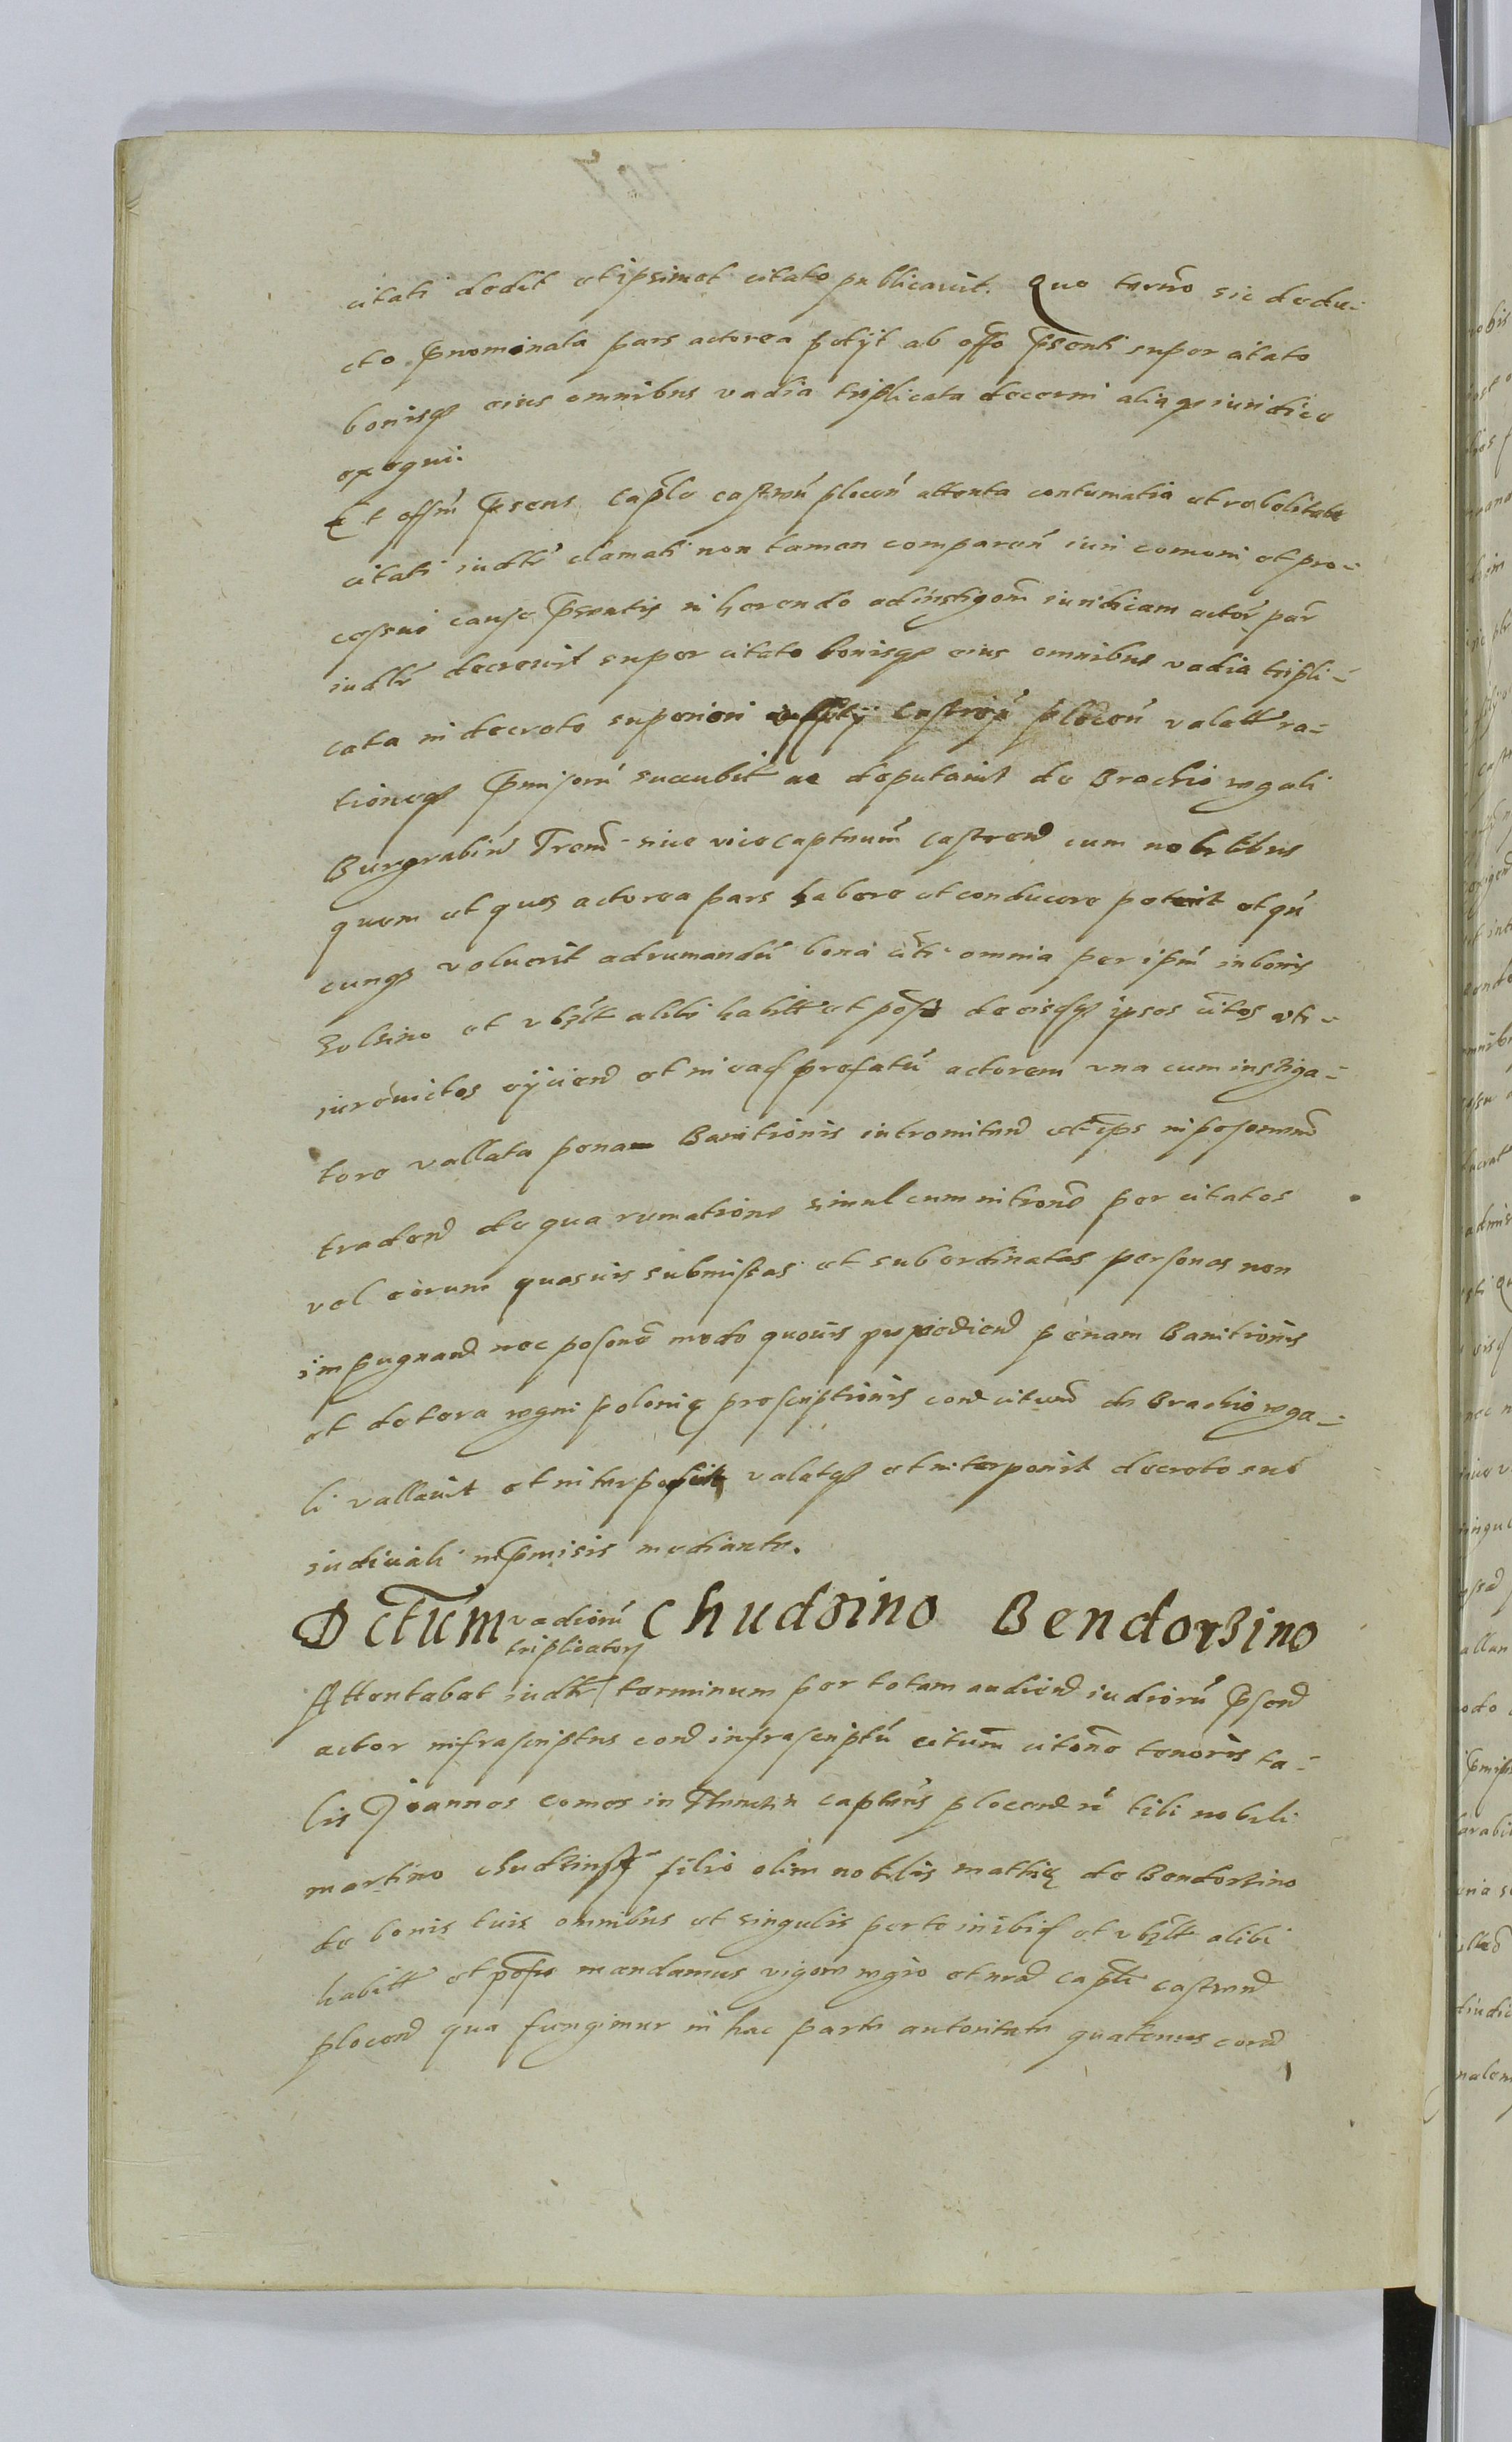 citati dedit et ipsimet citato publicavit. Quo termō sic dedu-
cto p̄nominata pars actorea petijt ab offō p̄senti super citato
bonisq̨ eius omnibus vadia triplicata decerni aliaq̨ iuridice
exequi.
Et offm̄ p̄sens cap̄le castreń plocen̄ attenta contumatia et rebelitate
citati iudtr̄ clamati non tamen comparen̄ iuri comuni et pro-
cessui cause p̄sentis inherendo ad instigōem iuridicam actor̄ par̄
iudtr̄ decrevit super citato bonisq̨ eius omnibus vadia tripli-
cata in decreto superiori castreń plocen̄ valatt ra-
tioneq̨ p̄missorū succubit ac deputavit de Brachio regali
Burgrabiū Trem̄ sive vicecaptneūm castrend cum nobilibus
quem et quos actorea pars habere et conducere poterit et qū
cunq̨ voluerit ad rumandū bona citi omnia per ipm̄ in bonis
et vbz̄lt alibi habitt et pōss de eisdq̨ ipsos citos vti
iurevictos eijciend et in ead prefatū actorem vna cum instiga-
tore vallata pena Banitionis intromitend et ips in possession̄
tradend de qua rumatione simul cum intronē per citatos
vel eorum quasvis submissas et subordinatas personas non
impugnand nec posonē modo quovis impediend penam Banitionis
et de tera regni polonię proscriptionis cond citum̄ de Brachio rega-
li vallavit et interposuit valatq̨ et interponit decreto suo
iudiciali in p̄misis mediante.
Dctum vadiorū triplicator Chudzino Bendorzino
Attentabat iudtr̄ terminum per totam audiend iudiorū p̄send
actor infrascriptus cond infrascriptū citum̄ citōne tenoris ta-
lis Joannes comes in captneus plocend tibi nobili
martino chudzinsk filio olim nobilis mathię de Bendorzino
de bonis tuis omnibus et singulis per te inibiq et vbz̄lt alibi
habitt et pōss mandamus vigore regio et nrad cap̄ti castrend
plocend qua fungimur in hac parte autoritate quatenus cord